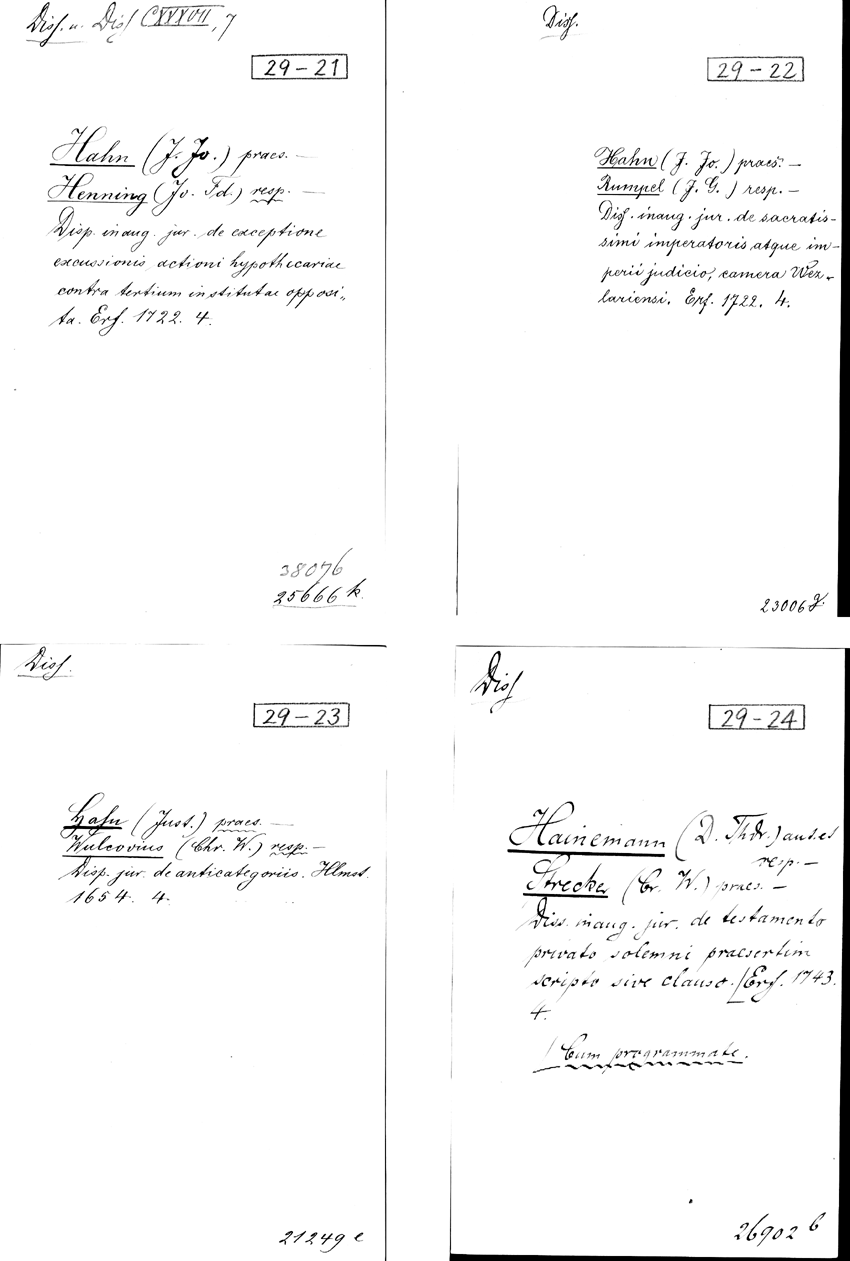 Diss. u. Diss CXXXVII, 7
29-21
Hahn (J. Jo.) praes. —
Henning (Jo. Fd.) resp. —
Disp. inaug. jur. de exceptione
excussionis actioni hypothecariae
contra tertium institutae opposi„
ta. Erf. 1722. 4.
38076
25666 k.
Diss.
29-22
Hahn (J. Jo.) praes. —
Rumpel (J. G.) resp. —
Diss. inaug. jur. de sacratis-
simi imperatoris atque im-
perii judicio, camera Wez-
lariensi. Erf. 1722. 4.
23006
Diss.
29-23
Hahn (Just.) praes. —
Wulcovius (Chr. W.) resp. —
Disp. jur. de anticategoriis. Hlmst.
1654. 4.
21249 e
Diss
29-24
Hainemann (D. Thdr.) auct. et
resp. —
Strecker (Cr. W.) praes. —
Diss. inaug. jur. de testamento
privato solemni praesertim
scripto sive clauso. / Erf. 1743.
4.
/ Cum programmate.
26902 b